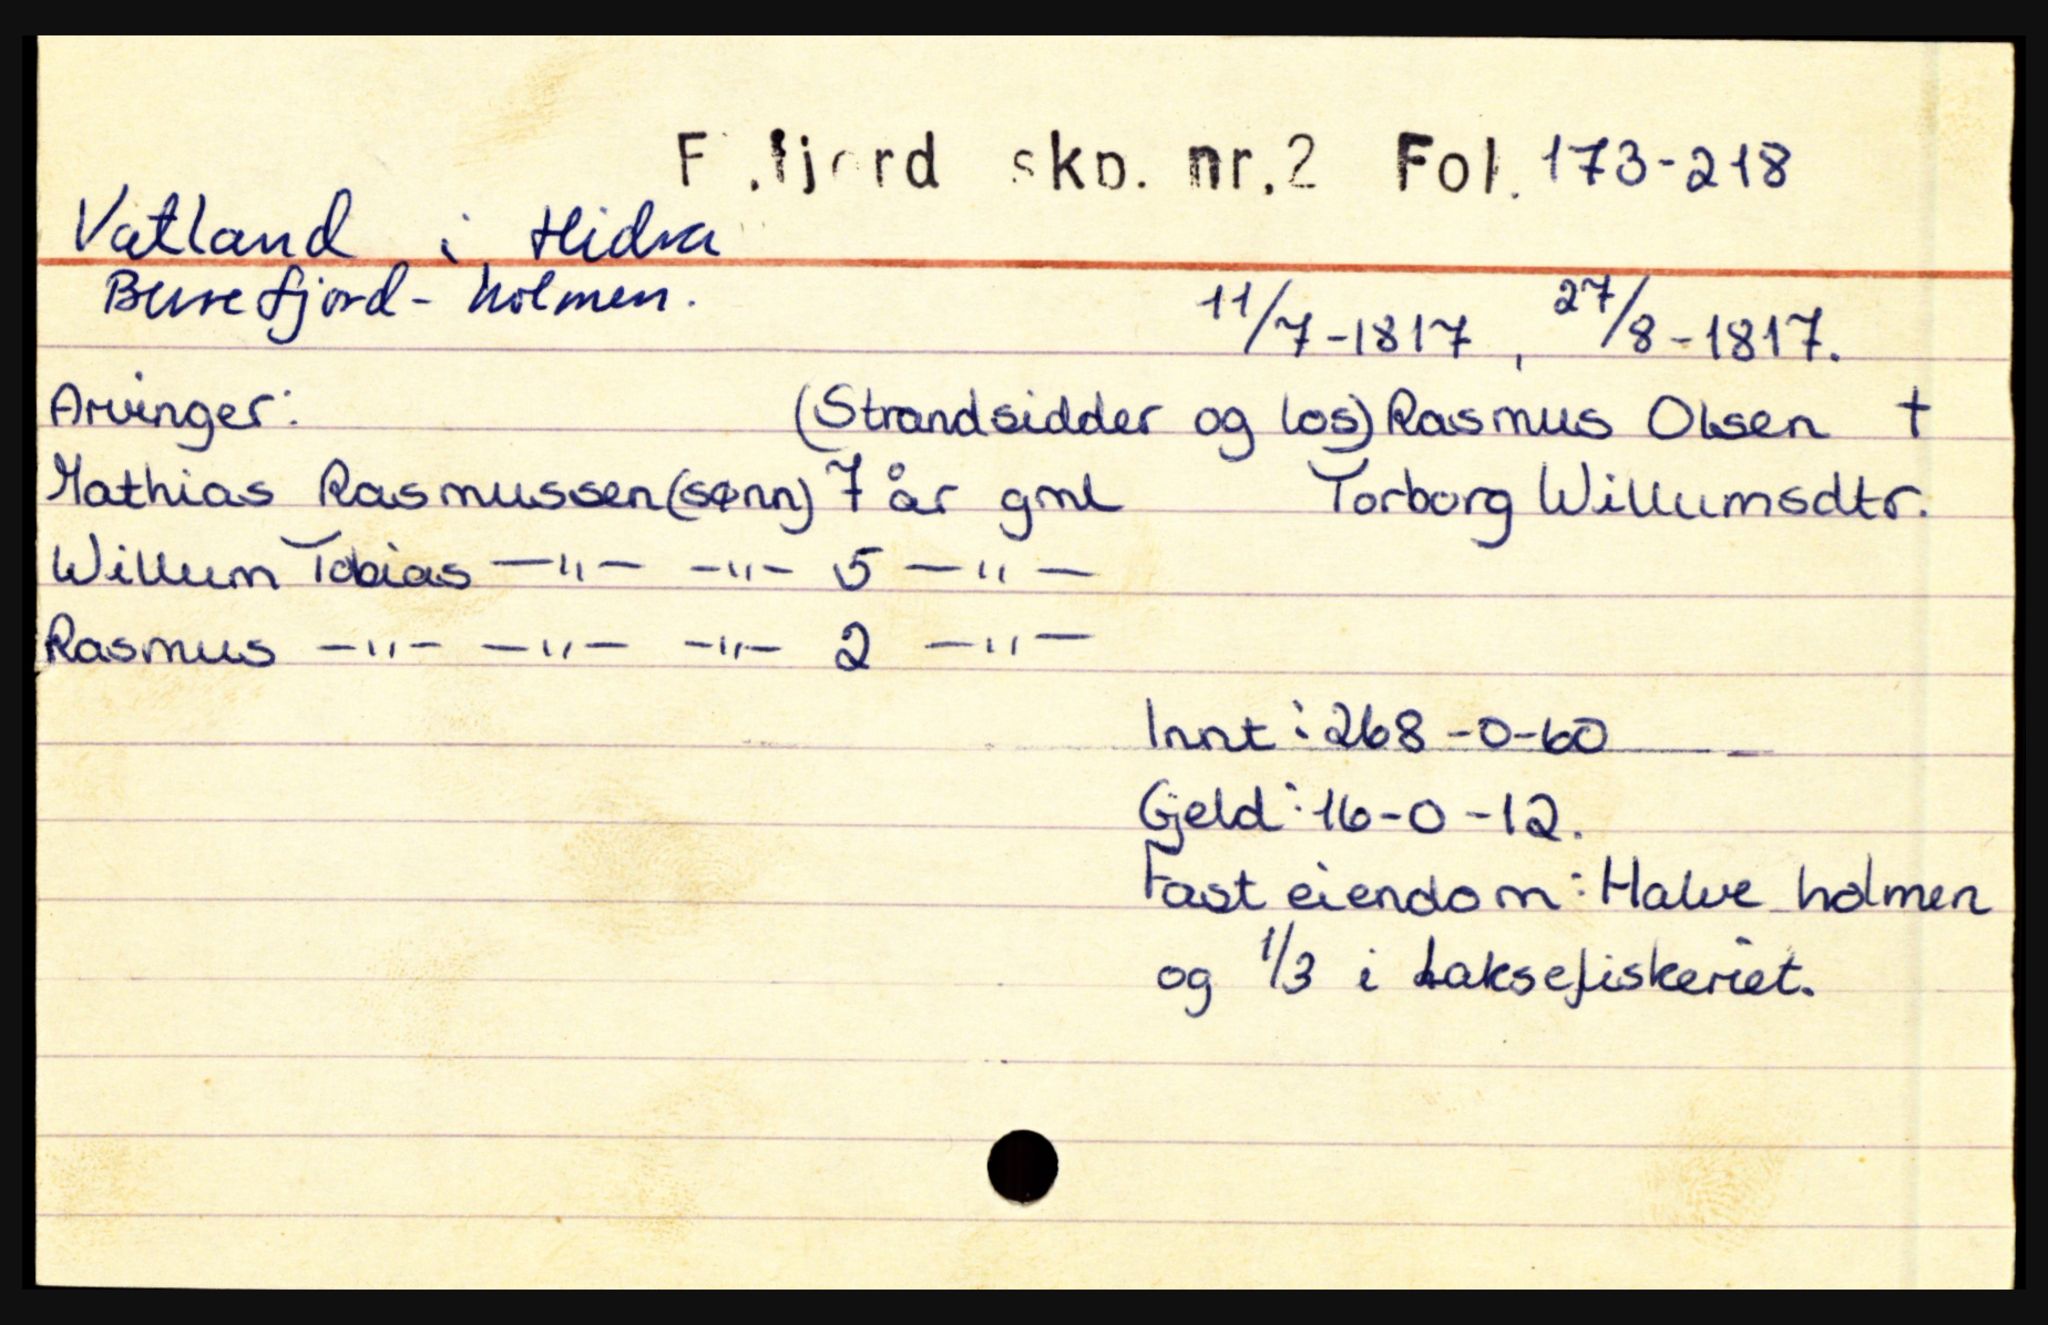 F.fjord skp. nr.2 Fol. 173-218
Vatland i Hidra
Burefjord- holmen.
11/7-1817, 27/8-1817.
Arvinger: (Strandsidder og los) Rasmus Olsen †
Mathias Rasmussen (sønn) 7 år gml Torborg Willumsdtr.
Willum Tobias —"— —"— 5 —"—
Rasmus —"— —"— —"— 2 —"—
Innt: 268-0-60
Gjeld: 16-0-12.
Fast eiendom: Halve holmen
og 1/3 i Laksefiskeriet.